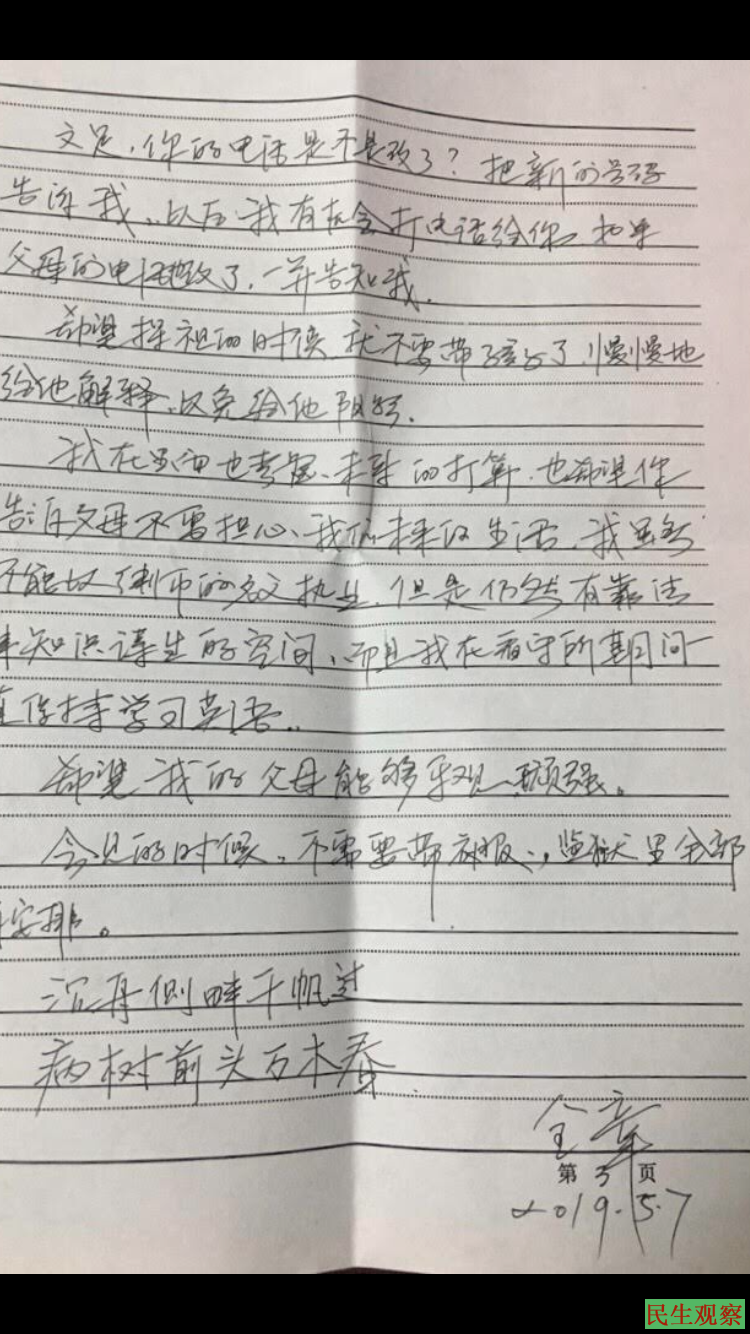 文足，你的电话是不是改了？把新的号码
告诉我、以后我有机会打电话给你，如果
父母的电话也改了，一并告知我.
希望探视的时候就不要带孩子了，慢慢地
给他解释，以免给他阴影.
我在里面也考虑、未来的打算，也希望你
告诉父母不要担心、我们未来的生活，我虽然
不能以律师的名义执业，但是仍然有靠法
律知识谋生的空间，而且我在看守所期间一
直保持学习英语..
希望我的父母能够乐观、顽强。
会见的时候，不需要带衣服，监狱里全部
有安排。
沉舟侧畔千帆过
病树前头万木春
全章
第 3 页
2019.5.7
民生观察